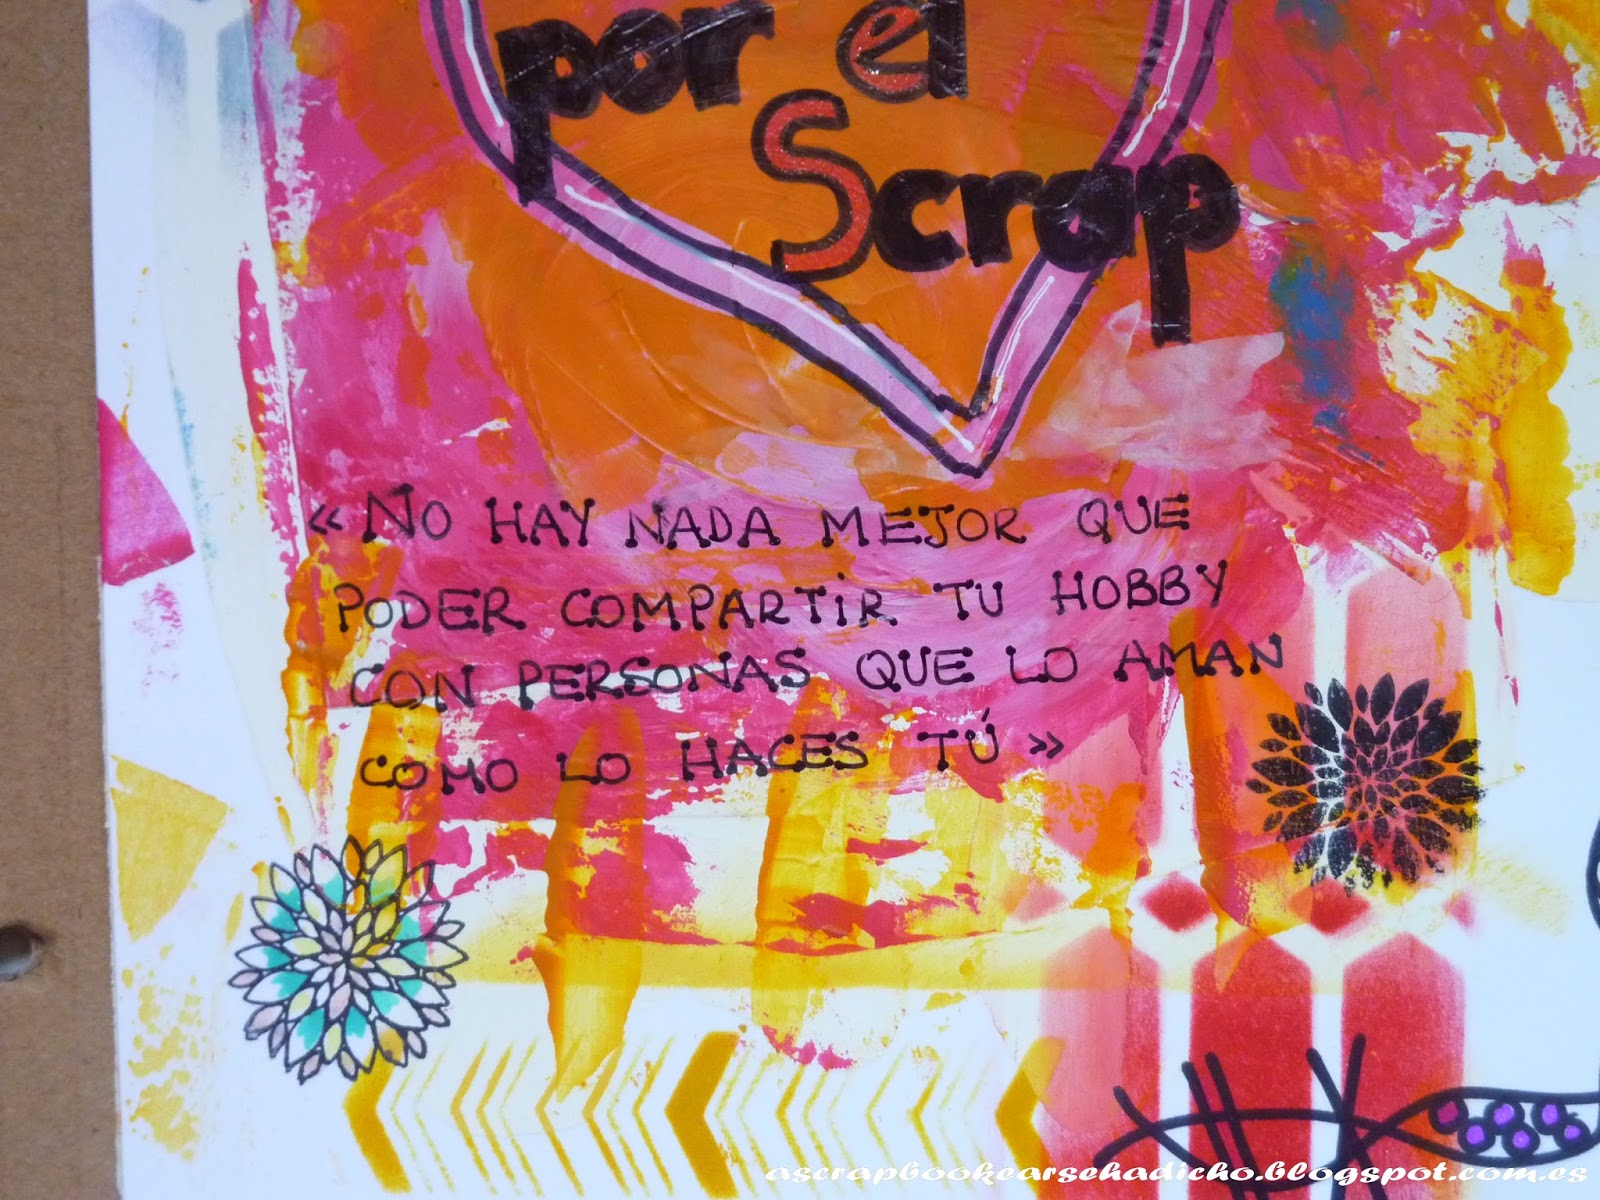 por el
Scrap
« NO HAY NADA MEJOR QUE
PODER COMPARTIR TU HOBBY
CON PERSONAS QUE LO AMAN
COMO LO HACES TÚ »
ascrapbookearsehadicho.blogspot.com.es